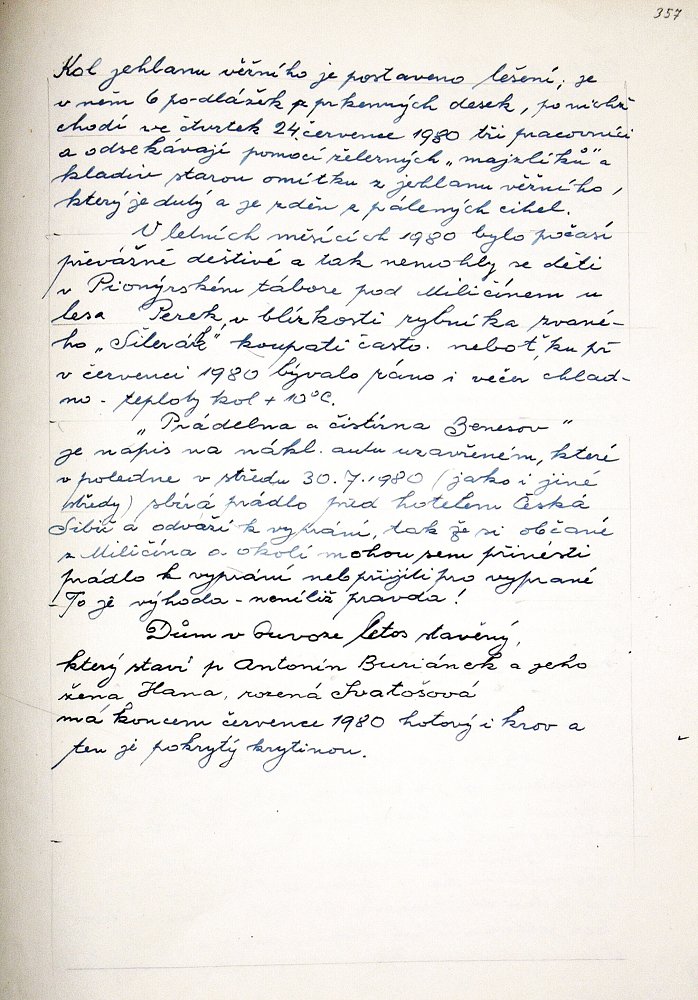 357
Kol jehlanu věžního je postaveno lešení; je
v něm 6 po-dlážek z prkenných desek, po nichž
chodí ve čtvrtek 24. července 1980 tři pracovníci
a odsekávají pomocí železných „majzlíků" a
kladiv starou omítku z jehlanu věžního,
který je dutý a je zděn z pálených cihel.
V letních měsících 1980 bylo počasí
převážně deštivé a tak nemohly se děti
v Pionýrském táboře pod Miličínem u
lesa Perek, v blízkosti rybníka zvané-
ho „Silerák" koupati často. neboť, ku př
v červenci 1980 bývalo ráno i večer chlad-
no - teploty kol + 10°C.
„Prádelna a čistírna Benesov"
je nápis na nákl. autu uzavřeném, které
v poledne v středu 30.7.1980 (jako i jiné
středy) sbírá prádlo před hotelem Česká
Sibiř a odváží k vyprání, tak že si občané
z Miličína a okolí mohou sem přinésti
prádlo k vyprání neb přijíti pro vyprané
- To je výhoda - neníliž pravda!
Dům v Ouvoze letos stavěný,
který staví p Antonín Buriánek a jeho
žena Hana, rozená Svatošová
má koncem července 1980 hotový i krov a
ten je pokrytý krytinou.